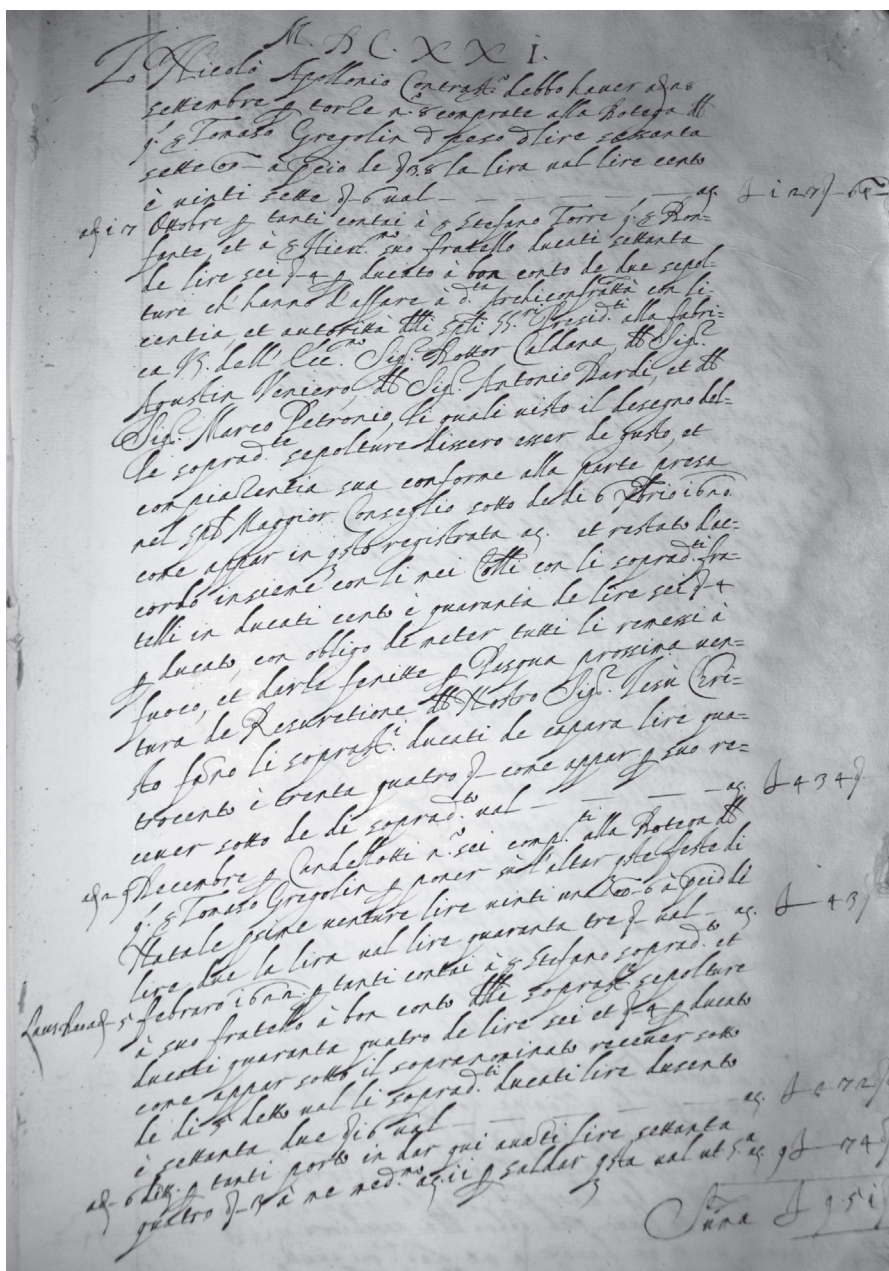 M. D C. X X I.
Io Nicolò Apollonio Contrasti.r debbo haver adi 8
settembre p torze n.o 8 comprate alla Botega dll
q. s Tomaso Gregolin d peso d lire sessanta
sette a pcio de s 38 la lira val lire cento
è vinti sette s 6 val — — — — — ac. £ 127 s 6
adi 17 Ottobre p tanti contai à s Stefano Torre q. s Bon=
fante et à s Hier.mo suo fratello ducati settanta
de lire sei s 4 p ducato à bon conto de due sepol=
ture ch' hanno d'affare à d.ta Archiconfratta con li=
centia, et autorità dlli spti SS.ri Presid.ti alla fabri=
ca V. dell' Ecc.mo Sig.r Dottor Caldana, dll Sig.r
Agustin Veniero, dll Sig.r Antonio Dardi, et dll
Sig.r Marco Petronio, li quali visto il desegno del=
le soprad.te sepolture dissero esser de gusto, et
compiacentia sua conforme alla parte presa
nel spt Maggior Conseglio sotto de di 6 Xbrio 1620
come appar in qsto registrata ac. et restato d'ac=
cordo insieme con li mei Colli con li soprad.ti fra=
telli in ducati cento è quaranta de lire sei s 4
p ducato, con obligo de meter tutti li remessi à
fuoco, et darle fenitte p Pasqua prossima ven=
tura de Resuretione dll Nostro Sig.r Iesù Cri=
sto fano li soprast.i ducati de capara lire qua=
trocento è trenta quatro s — come appar p suo re=
cever sotto de di soprad.to val — — — — ac. £ 434 s
adi 25 Decembre p Candellotti n.o sei compl.ti alla Botega dll
q. s Tomaso Gregolin p poner sù l'altar qste feste di
Natale psime venture lire vinti una 6 à pcio di
lire due la lira val lire quaranta tre s — val — ac. £ 43 s
Laus Deo adi 5 febraro 1622 p tanti contai à s Stefano soprad.to et
à suo fratello à bon conto dlle soprast.e sepolture
ducati quaranta quatro de lire sei et s 4 p ducato
come appar sotto il sopranominato recever sotto
de di 5 detto val li soprad.ti ducati lire dusento
è settanta due s 16 val — — — — — ac. £ 272 s
adi 6 d.to p tanti porto in dar qui avati lire settanta
quatro s 3 à me med.mo ac. 11 p saldar qsta val ut s.a ac. 9 £ 74 s
Suma £ 951